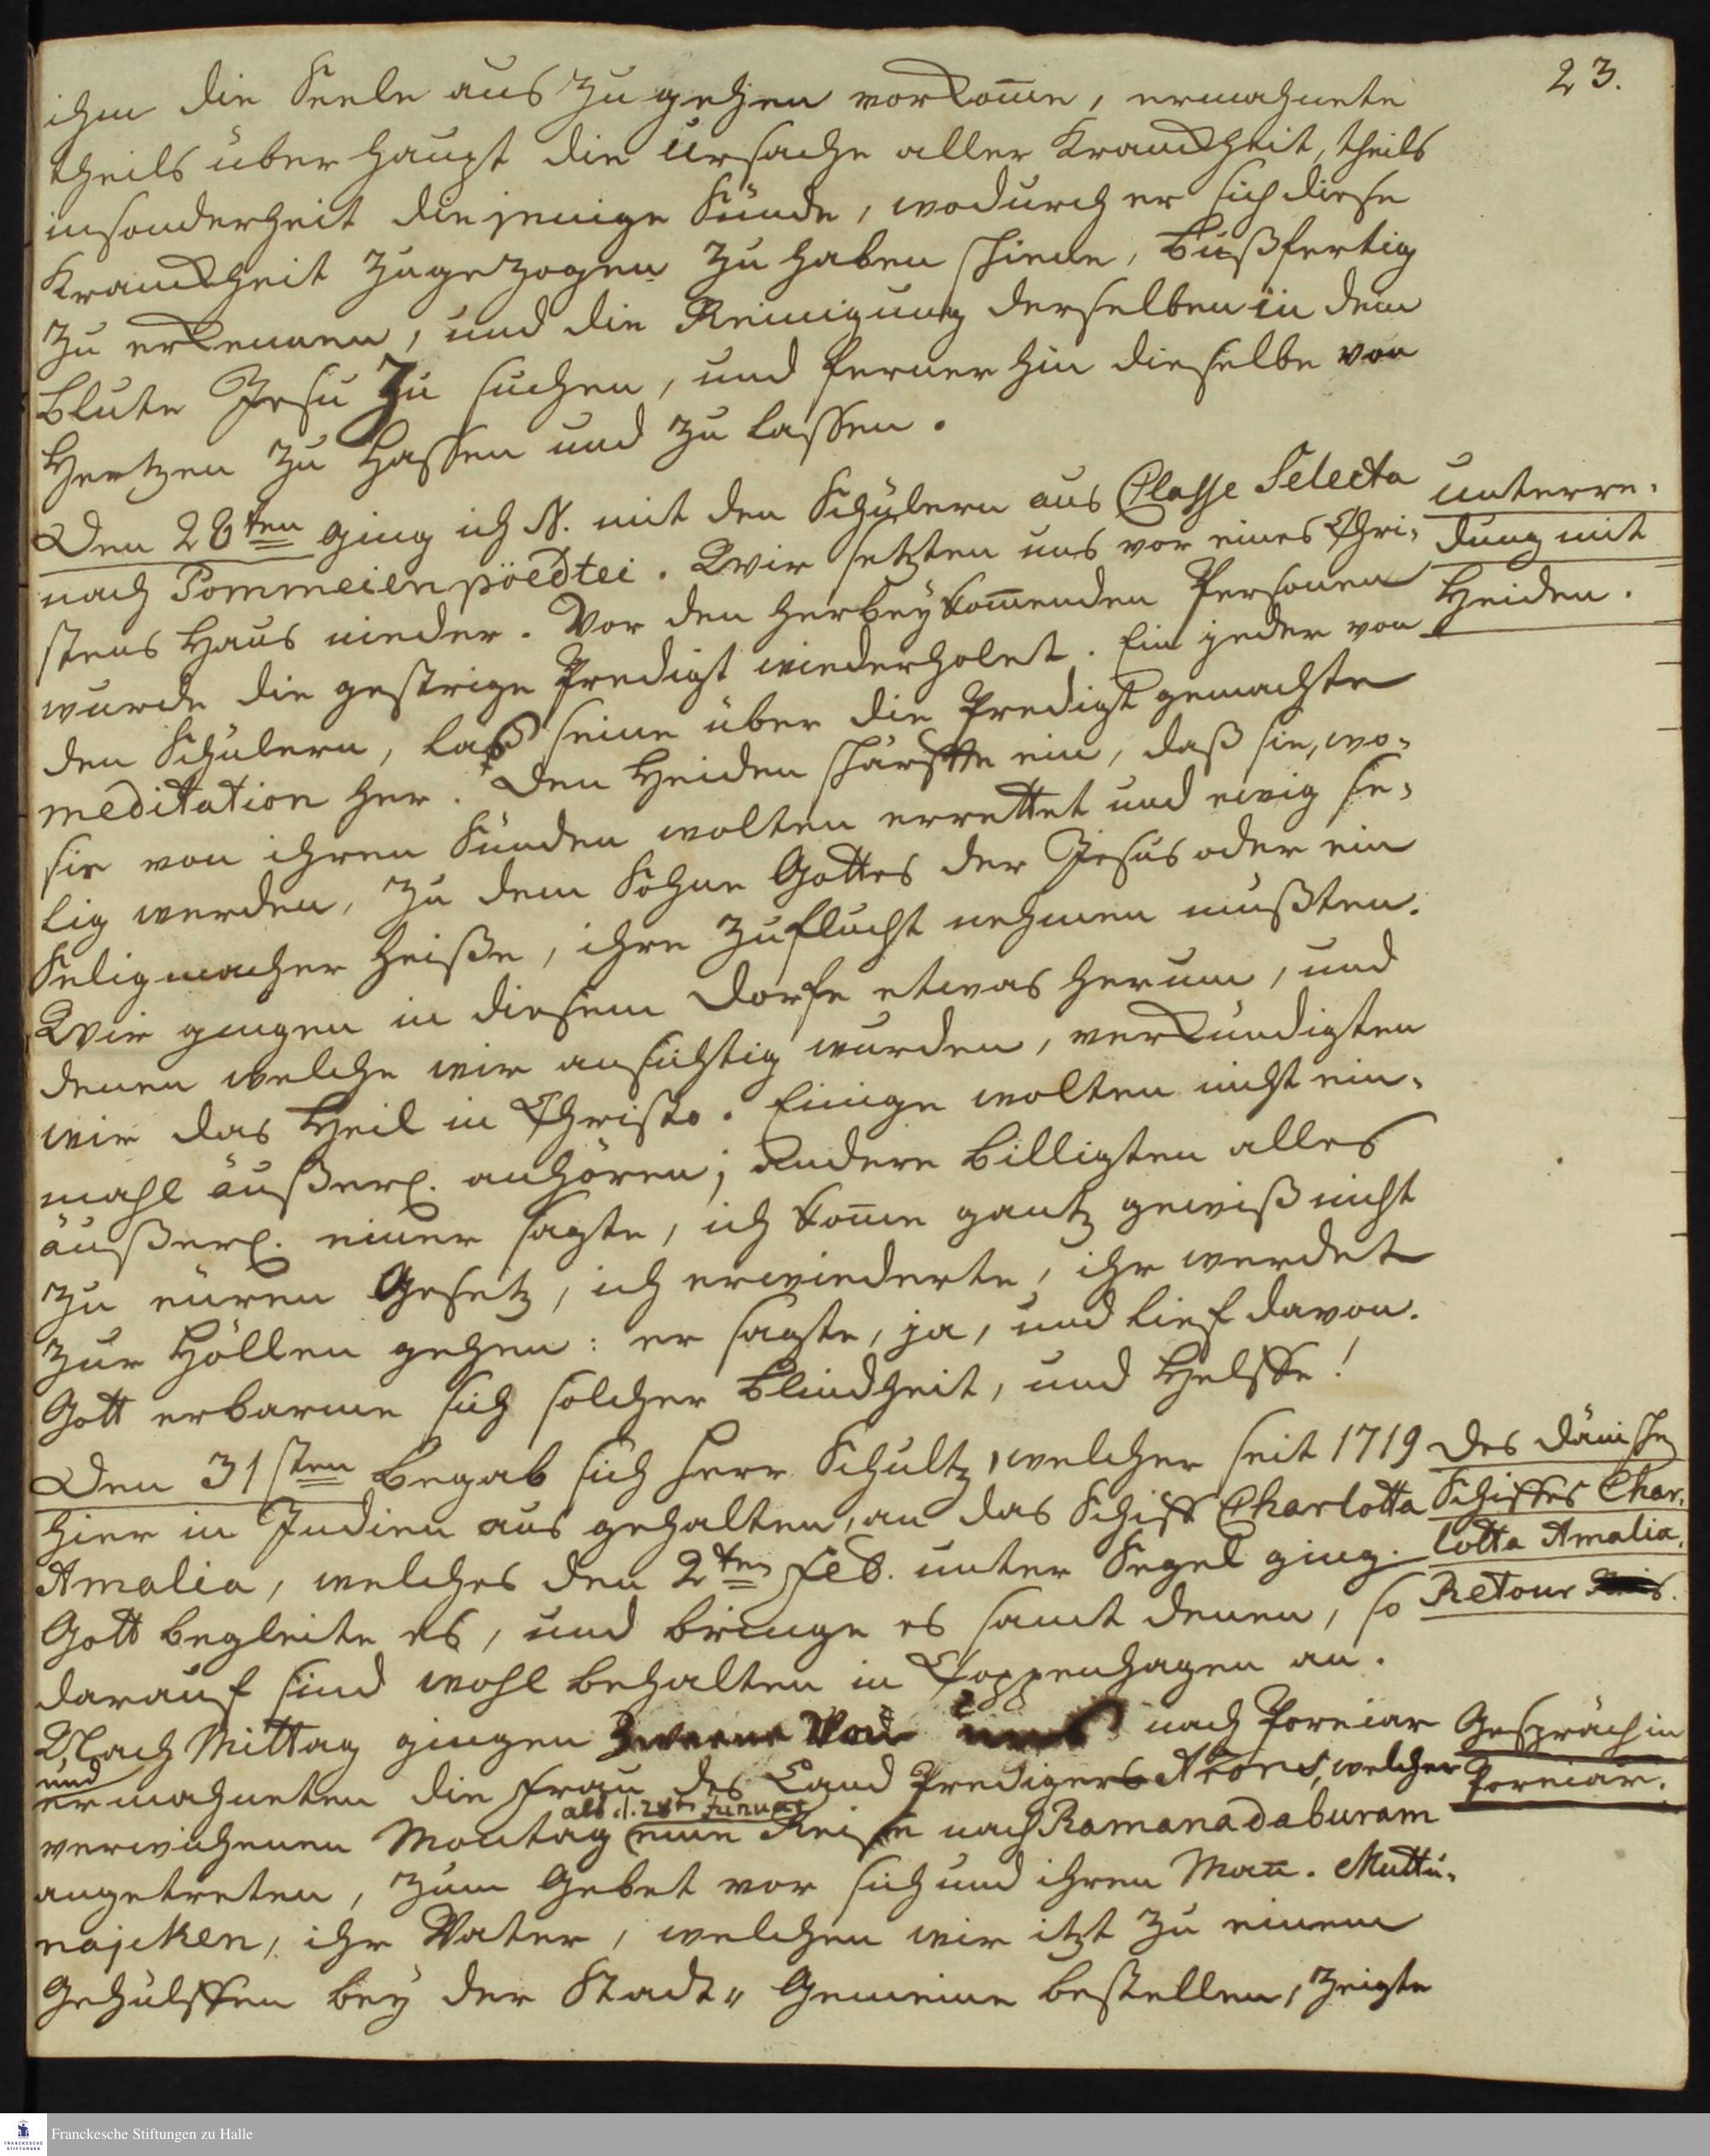 23.
ihm die Seele aus zu gehen vorkom̅e, ermahnete
theils über haupt die Ursache aller Kranckheit, theils
insonderheit die jenige Sünde, wodurch er sich diese
Kranckheit zugezogen zu haben schiene, bußfertig
zu erkennen, und die Reinigung derselben in dem
Blute Jesu zu suchen, und ferner hin dieselbe von
Hertzen zu Hassen und zu lassen.
Den 28ten ging ich N. mit den Schülern aus Classe Selecta
nach Pommeienpöedtei. Wir setzten uns vor eines Chri-
stens Haus nieder. Vor den herbeykom̅enden Personen
wurde die gestrige Predigt wiederholet. Ein jeder von
den Schülern, laß seine über die Predigt gemachte
meditation her. Den Heiden schärffte ein, daß sie, wo-
sie von ihren Sünden wolten errettet und ewig se-
lig werden, zu dem Sohne Gottes der Jesus oder ein
Seligmacher heiße, ihre Zuflucht nehmen müßten.
Wir gingen in diesem Dorfe etwas herum, und
denen welche wir ansichtig wurden, verkündigten
wir das Heil in Christo. Einige wolten nicht ein-
mahl äußerl. anhören; andere billigten alles
äußerl. einer sagte, ich kom̅e gantz gewiß nicht
zu euren Gesetz, ich erwiederte, ihr werdet
zur Höllen gehen: er sagte, ja, und lief davon.
Gott erbarme sich solcher Blindheit, und Helffe!
Den 31sten begab sich Herr Schultz, welcher seit 1719
hier in Indien aus gehalten, an das Schiff Charlotta
Amalia, welches den 2ten Feb. unter Segel ging.
Gott begleite es, und bringe es samt denen, so
darauf sind wohl behalten in Coppenhagen an.
Nach Mittag gingen zweene von uns nach Poreiar
und
ermahneten die Frau des Land Predigers Arons, welcher
als d. 28ten Januar
verwichenen Montag eine Reise nach Ramanadaburam
angetreten, zum Gebet vor sich und ihren Man̅. Muttu-
najcken, ihr Vater, welchen wir itzt zu einem
Gehülffen bey der Stadt-Gemeine bestellen, zeigte
Unterre-
dung mit
Heiden.
Des dänisch
Schiffes Char-
lotta Amalia
Retour
Gespräch in
Poreiar.
Franckesche Stiftungen zu Halle